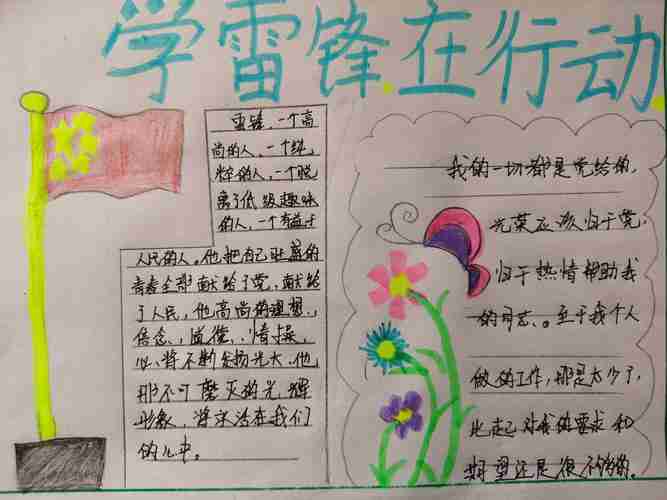 学雷锋在行动
雷锋、一个高
尚的人、一个纯
粹的人、一个脱
离了低级趣味
的人、一个有益于
人民的人。他把自己壮丽的
青春全部献给了党、献给
了人民，他高尚的理想、
信念、道德、情操、
必将不断发扬光大。他
那不可磨灭的光辉
形象，将永活在我们
的心中。
我的一切都是党给的，
光荣应该归于党，
归于热情帮助我
的同志。至于我个人
做的工作，那是太少了，
比起对我的要求和
期望还是很不够的。